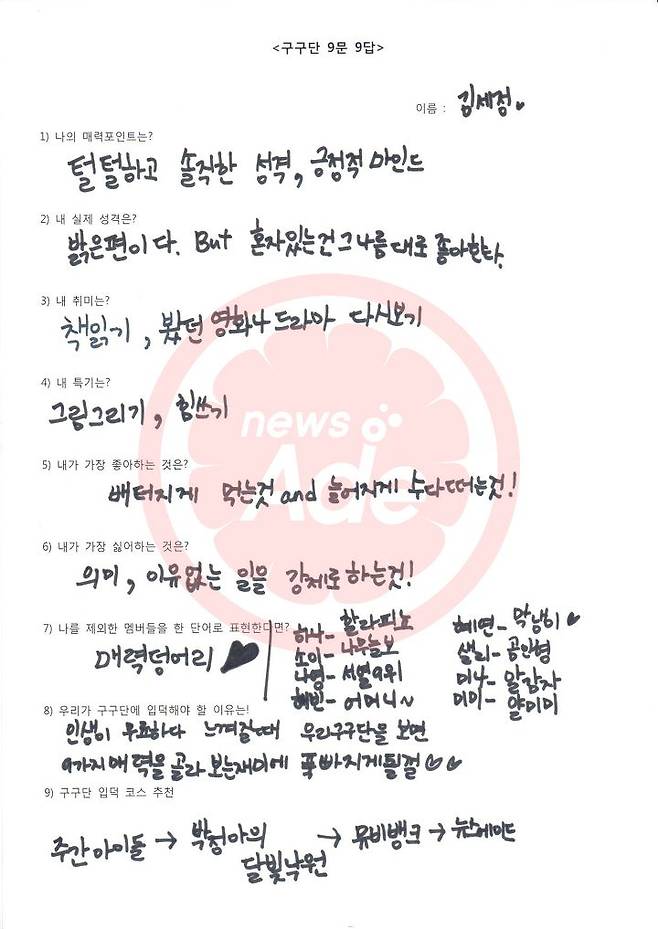 <구구단 9문 9답>
이름 : 김세정♥
1) 나의 매력포인트는?
털털하고 솔직한 성격, 긍정적 마인드
2) 내 실제 성격은?
밝은편이다. But 혼자있는건 그나름대로 좋아한다.
3) 내 취미는?
책읽기, 봤던 영화나 드라마 다시보기
4) 내 특기는?
그림그리기, 힘쓰기
news
Ade
5) 내가 가장 좋아하는 것은?
배터지게 먹는것 and 늘어지게 수다떠는것!
6) 내가 가장 싫어하는 것은?
의미, 이유없는 일을 강제로 하는것!
7) 나를 제외한 멤버들을 한 단어로 표현한다면?
매력덩어리 ♥
하나- 할라피뇨
소이- 나무늘보
나영- 서열9위
혜빈- 어머니~
혜연- 막냉이♥
샐리- 곰인형
미나- 알감자
미미- 얄미미
8) 우리가 구구단에 입덕해야 할 이유는!
인생이 무료하다 느껴질때 우리구구단을 보면
9가지매력을 골라 보는재미에 푹빠지게될껄♡♡
9) 구구단 입덕 코스 추천
주간아이돌 → 박정아의 달빛낙원 → 뮤비뱅크 → 뉴스에이드